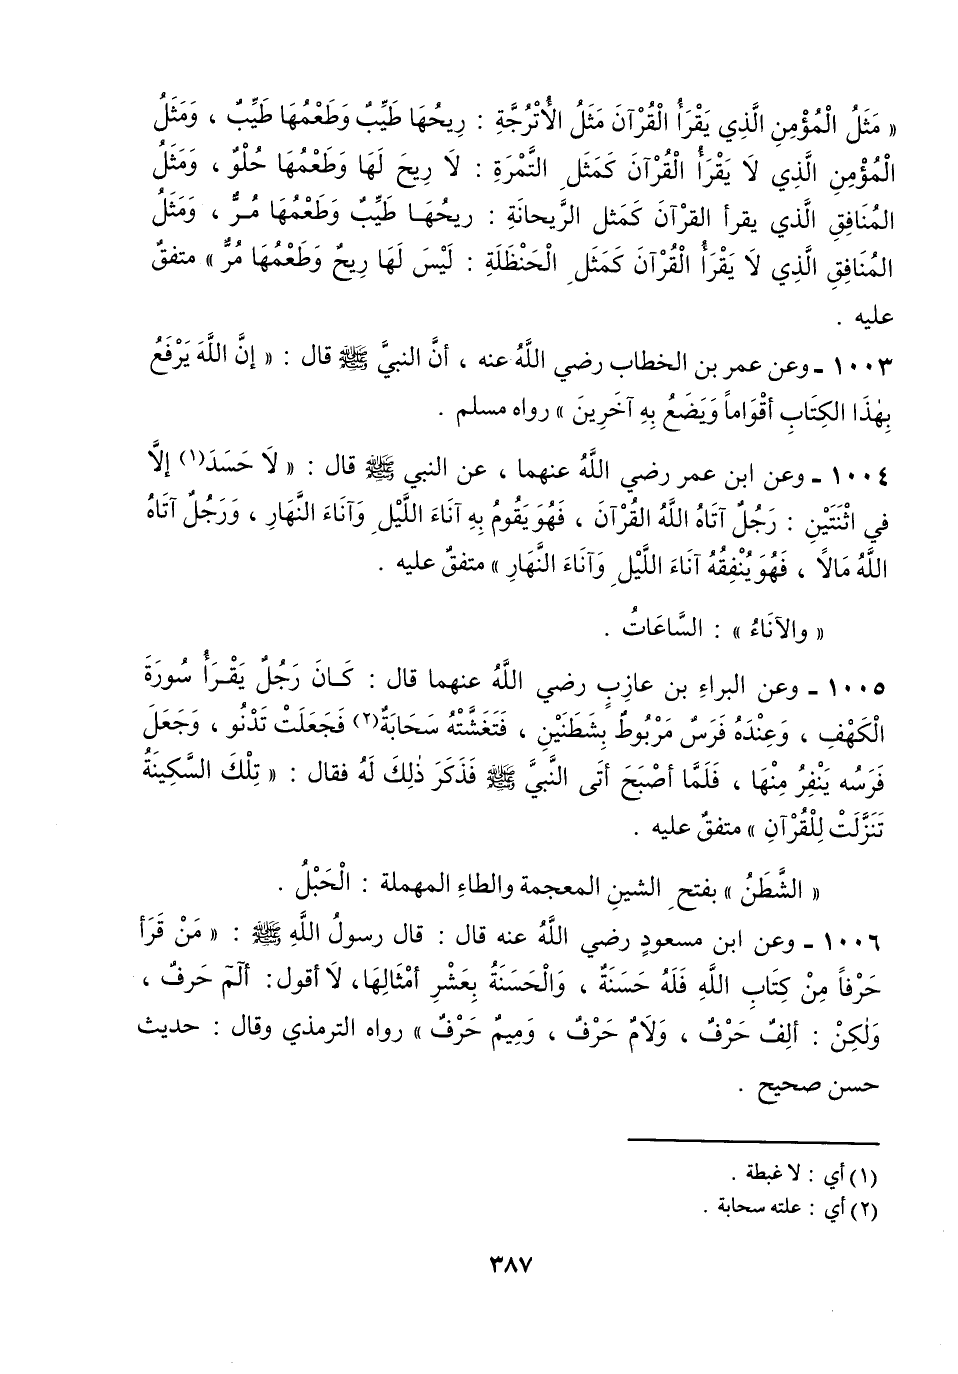 « مَثَلُ الْمُؤْمِنِ الَّذِي يَقْرَأُ الْقُرْآنَ مَثَلُ الْأُتْرُجَّةِ : رِيحُهَا طَيِّبٌ وَطَعْمُهَا طَيِّبٌ ، وَمَثَلُ
الْمُؤْمِنِ الَّذِي لَا يَقْرَأُ الْقُرْآنَ كَمَثَلِ التَّمْرَةِ : لَا رِيحَ لَهَا وَطَعْمُهَا حُلْوٌ ، وَمَثَلُ
المُنَافِقِ الَّذِي يقرأ القرْآنَ كَمَثل الرَّيحانَةِ : ريحُهَا طَيِّبٌ وَطَعْمُهَا مُرٌّ ، وَمَثَلُ
المُنَافِقِ الَّذِي لَا يَقْرَأُ الْقُرْآنَ كَمَثَلِ الْحَنْظَلَةِ : لَيْسَ لَهَا رِيحٌ وَطَعْمُهَا مُرٌّ » متفقٌ
عليه .
١٠٠٣ ـ وعن عمر بن الخطاب رضي اللَّهُ عنه ، أنَّ النبيَّ ﷺ قال : « إنَّ اللَّهَ يَرْفَعُ
بِهٰذَا الكِتَابِ أقْوَاماً وَيَضَعُ بِهِ آخَرِينَ » رواه مسلم .
١٠٠٤ ـ وعن ابن عمر رضي اللَّهُ عنهما ، عن النبي ﷺ قال : « لَا حَسَدَ(١) إلَّا
في اثْنَتَيْنِ : رَجُلٌ آتَاهُ اللَّهُ القُرْآنَ ، فَهُوَ يَقُومُ بِهِ آنَاءَ اللَّيْلِ وَآنَاءَ النَّهَارِ ، وَرَجُلٌ آتَاهُ
اللَّهُ مَالاً ، فَهُوَ يُنْفِقُهُ آنَاءَ اللَّيْلِ وَآنَاءَ النَّهَارِ » متفقٌ عليه .
« والآنَاءُ » : السَّاعَاتُ .
١٠٠٥ ـ وعن البراءِ بن عازِبٍ رضي اللَّهُ عنهما قال : كَانَ رَجُلٌ يَقْرَأُ سُورَةَ
الْكَهْفِ ، وَعِنْدَهُ فَرَسٌ مَرْبُوطٌ بِشَطَنَيْنِ ، فَتَغَشَّتْهُ سَحَابَةٌ(٢) فَجَعَلَتْ تَدْنُو ، وَجَعَلَ
فَرَسُه يَنْفِرُ مِنْهَا ، فَلَمَّا أصْبَحَ أتَى النَّبيَّ ﷺ فَذَكَرَ ذٰلِكَ لَهُ فقال : « تِلْكَ السَّكِينَةُ
تَنَزَّلَتْ لِلْقُرْآنِ » متفقٌ عليه .
« الشَّطَنُ » بفتحِ الشينِ المعجمة والطاءِ المهملة : الْحَبْلُ .
١٠٠٦ ـ وعن ابن مسعودٍ رضي اللَّهُ عنه قال : قال رسولُ اللَّهِ ﷺ : « مَنْ قَرَأ
حَرْفاً مِنْ كِتَابِ اللَّهِ فَلَهُ حَسَنَةٌ ، وَالْحَسَنَةُ بِعَشْرِ أمْثَالِهَا، لَا أقول: ألَمٓ حَرفٌ ،
وَلٰكِنْ : ألِفٌ حَرْفٌ ، وَلَامٌ حَرْفٌ ، وَمِيمٌ حَرْفٌ » رواه الترمذي وقال : حديث
حسن صحيح .
(١) أي : لا غبطة .
(٢) أي : علته سحابة .
٣٨٧